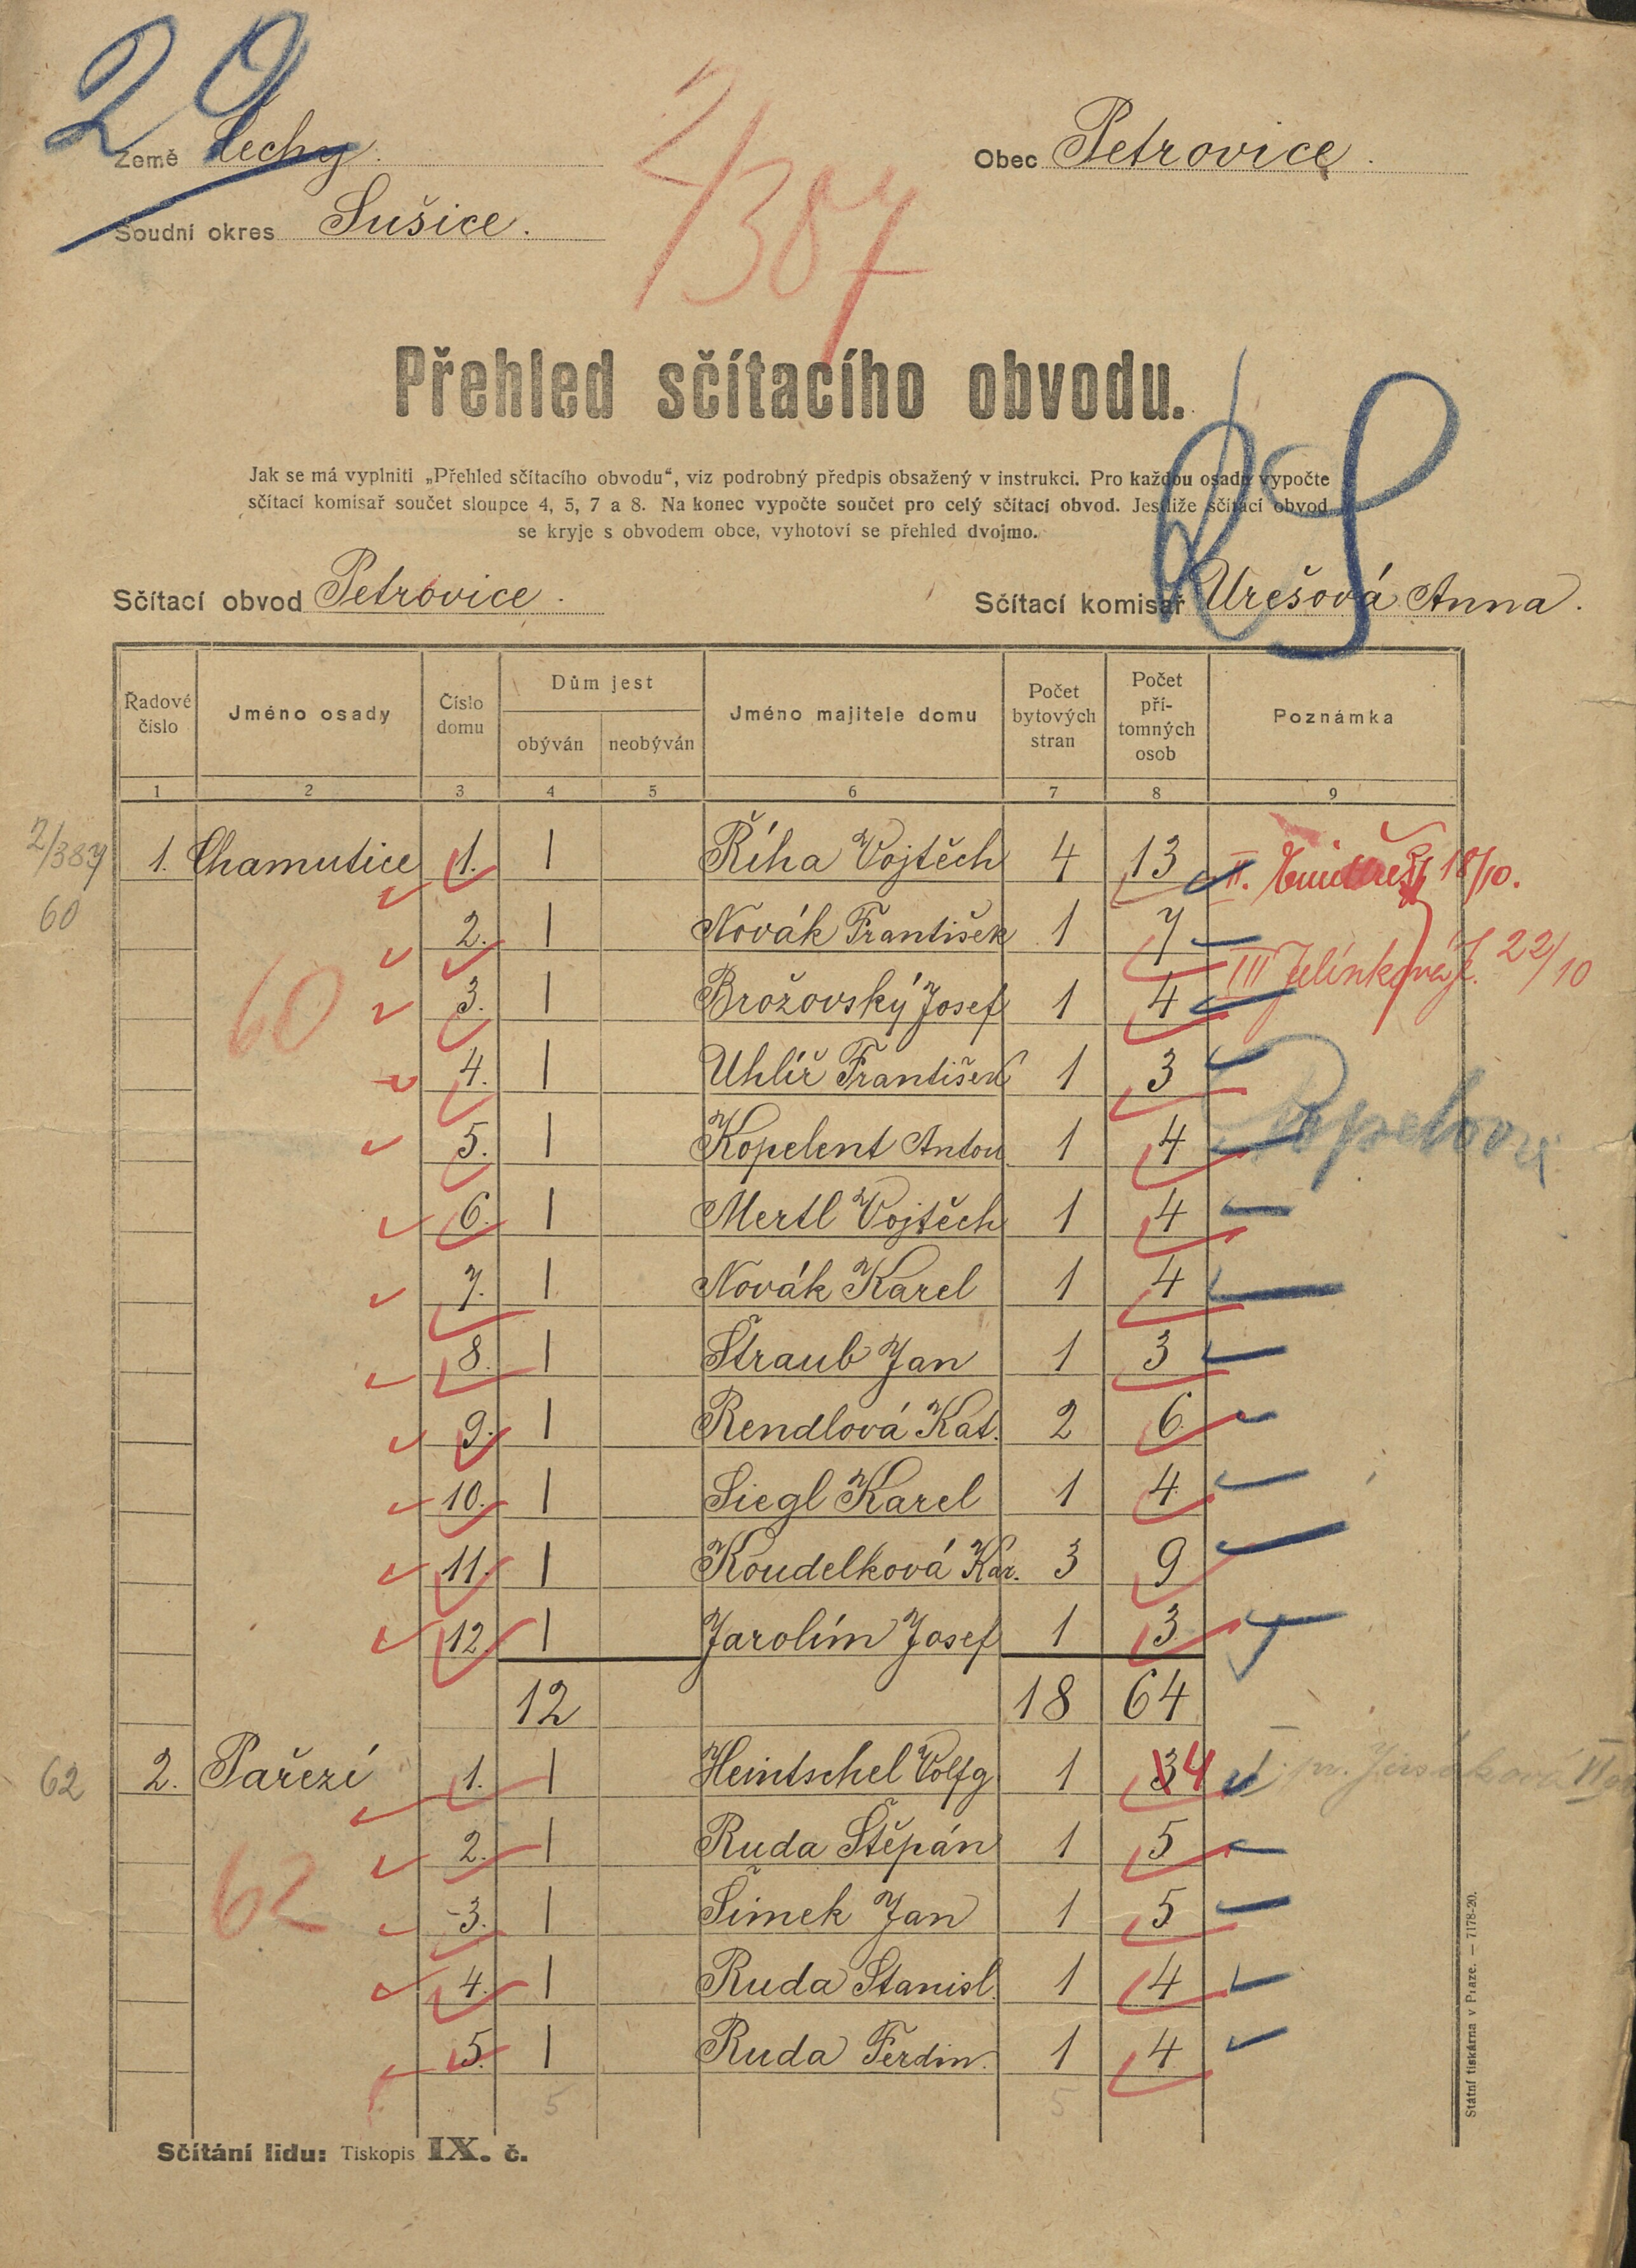 20
Země Čechy.
2/387
Obec Petrovice.
Soudní okres Sušice.
Přehled sčítacího obvodu.
RS
Jak se má vyplniti „Přehled sčítacího obvodu“, viz podrobný předpis obsažený v instrukci. Pro každou osadu vypočte
sčítací komisař součet sloupce 4, 5, 7 a 8. Na konec vypočte součet pro celý sčítací obvod. Jestliže sčítací obvod
se kryje s obvodem obce, vyhotoví se přehled dvojmo.
Sčítací obvod Petrovice. Sčítací komisař Urešová Anna.
Řadové číslo Jméno osady Číslo domu Dům jest obýván neobýván Jméno majitele domu Počet bytových stran Počet pří-tomných osob Poznámka
1 2 3 4 5 6 7 8 9
2/387 1. Chamutice 1. 1 Říha Vojtěch 4 13 II. 18/10.
60 2. 1 Novák František 1 7
III Jelínková J. 22/10
60 3. 1 Brožovský Josef 1 4
4. 1 Uhlíř František 1 3
5. 1 Kopelent Anton 1 4 Popelová
6. 1 Mertl Vojtěch 1 4
7. 1 Novák Karel 1 4
8. 1 Straub Jan 1 3
9. 1 Rendlová Kat. 2 6
10. 1 Siegl Karel 1 4
11. 1 Koudelková Kar. 3 9
12. 1 Jarolím Josef 1 3
12 18 64
62 2. Pařezí 1. 1 Heintschel Volfg. 1 3 4
2. 1 Ruda Štěpán 1 5
62 3. 1 Šimek Jan 1 5
4. 1 Ruda Stanisl. 1 4
5. 1 Ruda Ferdin. 1 4
5 5
Sčítání lidu: Tiskopis IX. č.
Státní tiskárna v Praze. — 7178-20.